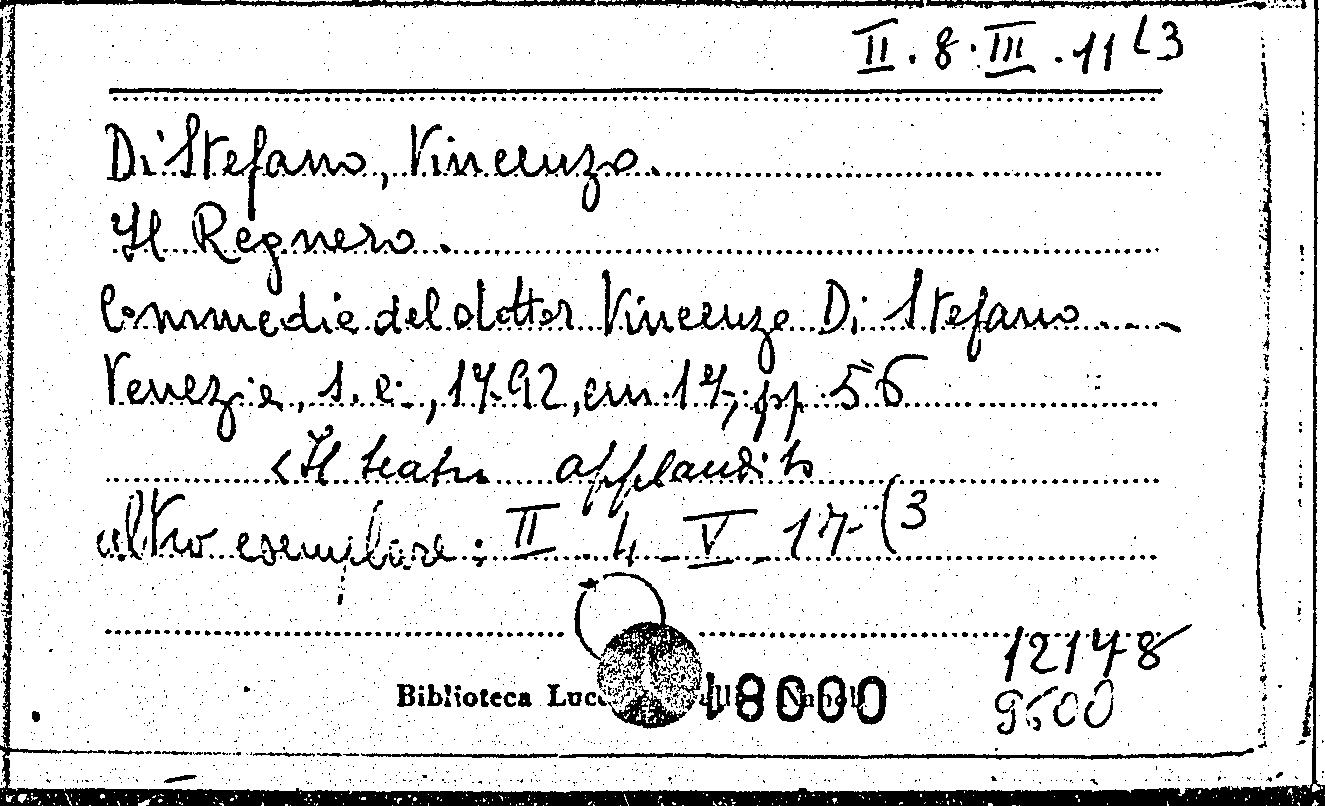 II.8.III.11(3
Di Stefano, Vincenzo.
Il Regnero.
Commedia del dottor Vincenzo Di Stefano...
Venezia, s.e., 1792, cm.17, pp 56
<Il teatro applaudito
altro esemplare: II-4-V-17(3
12178
Biblioteca Lucc
18000
9500